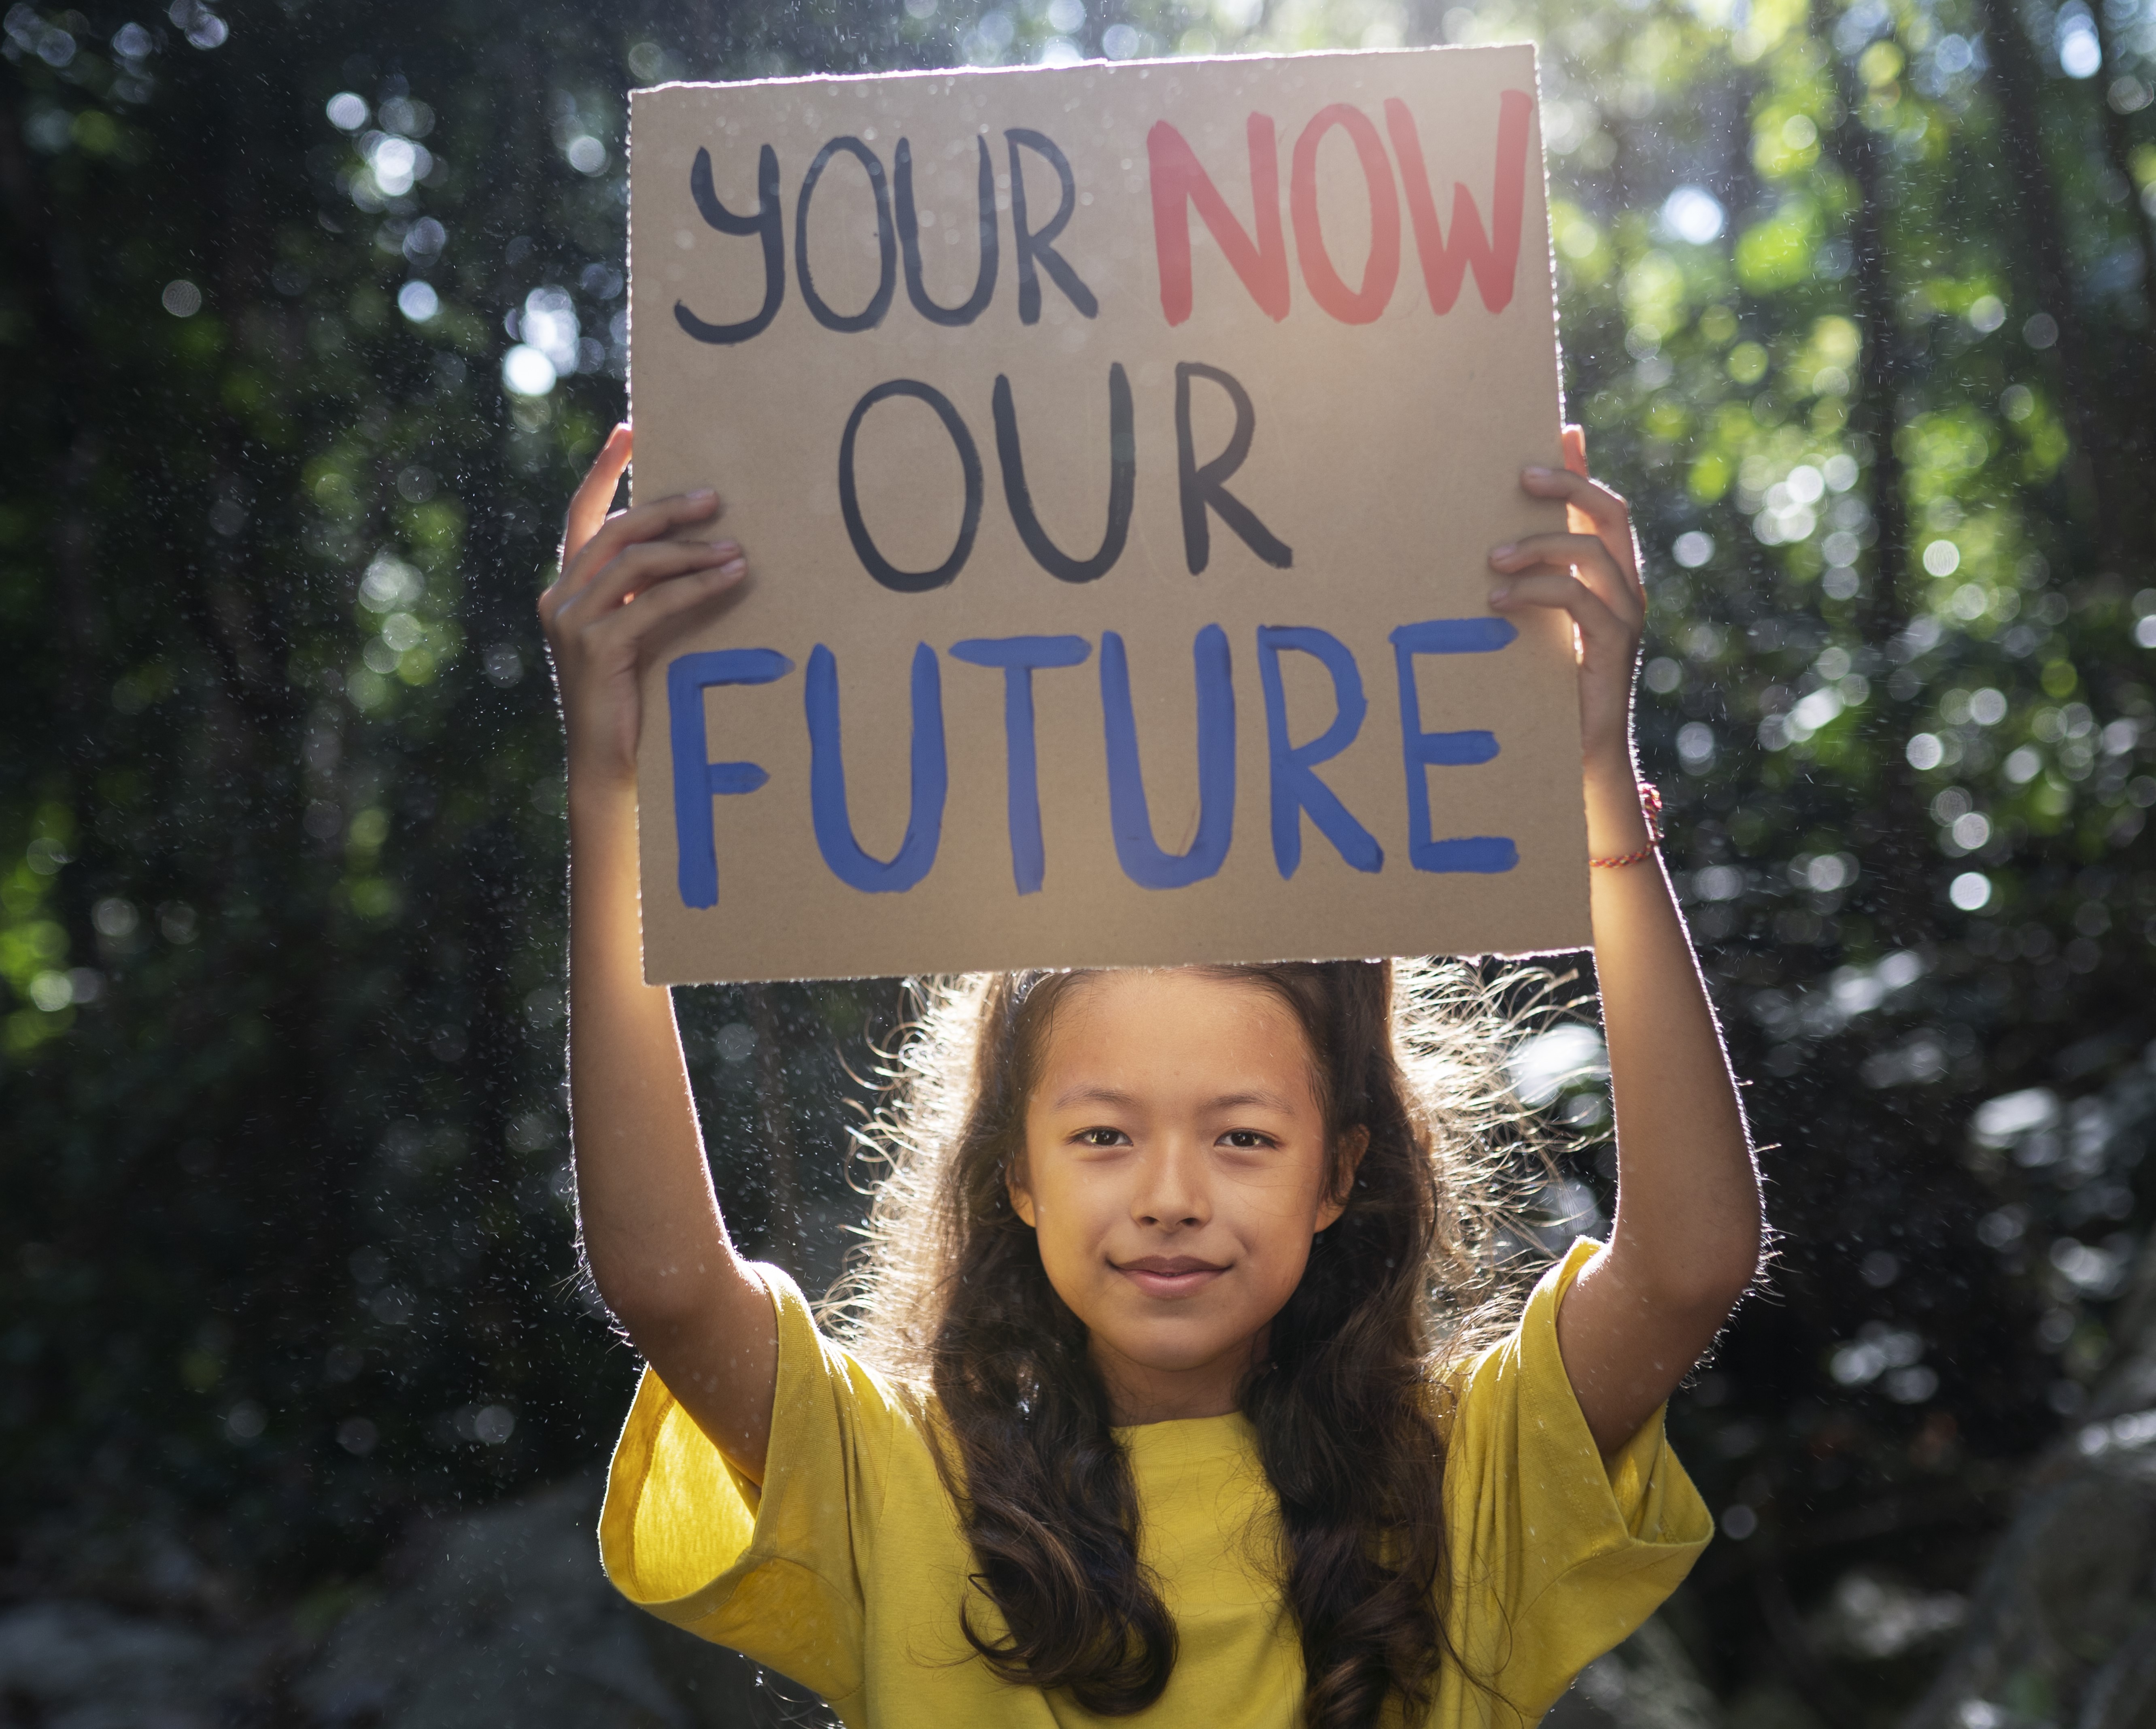 YOUR NOW
OUR
FUTURE